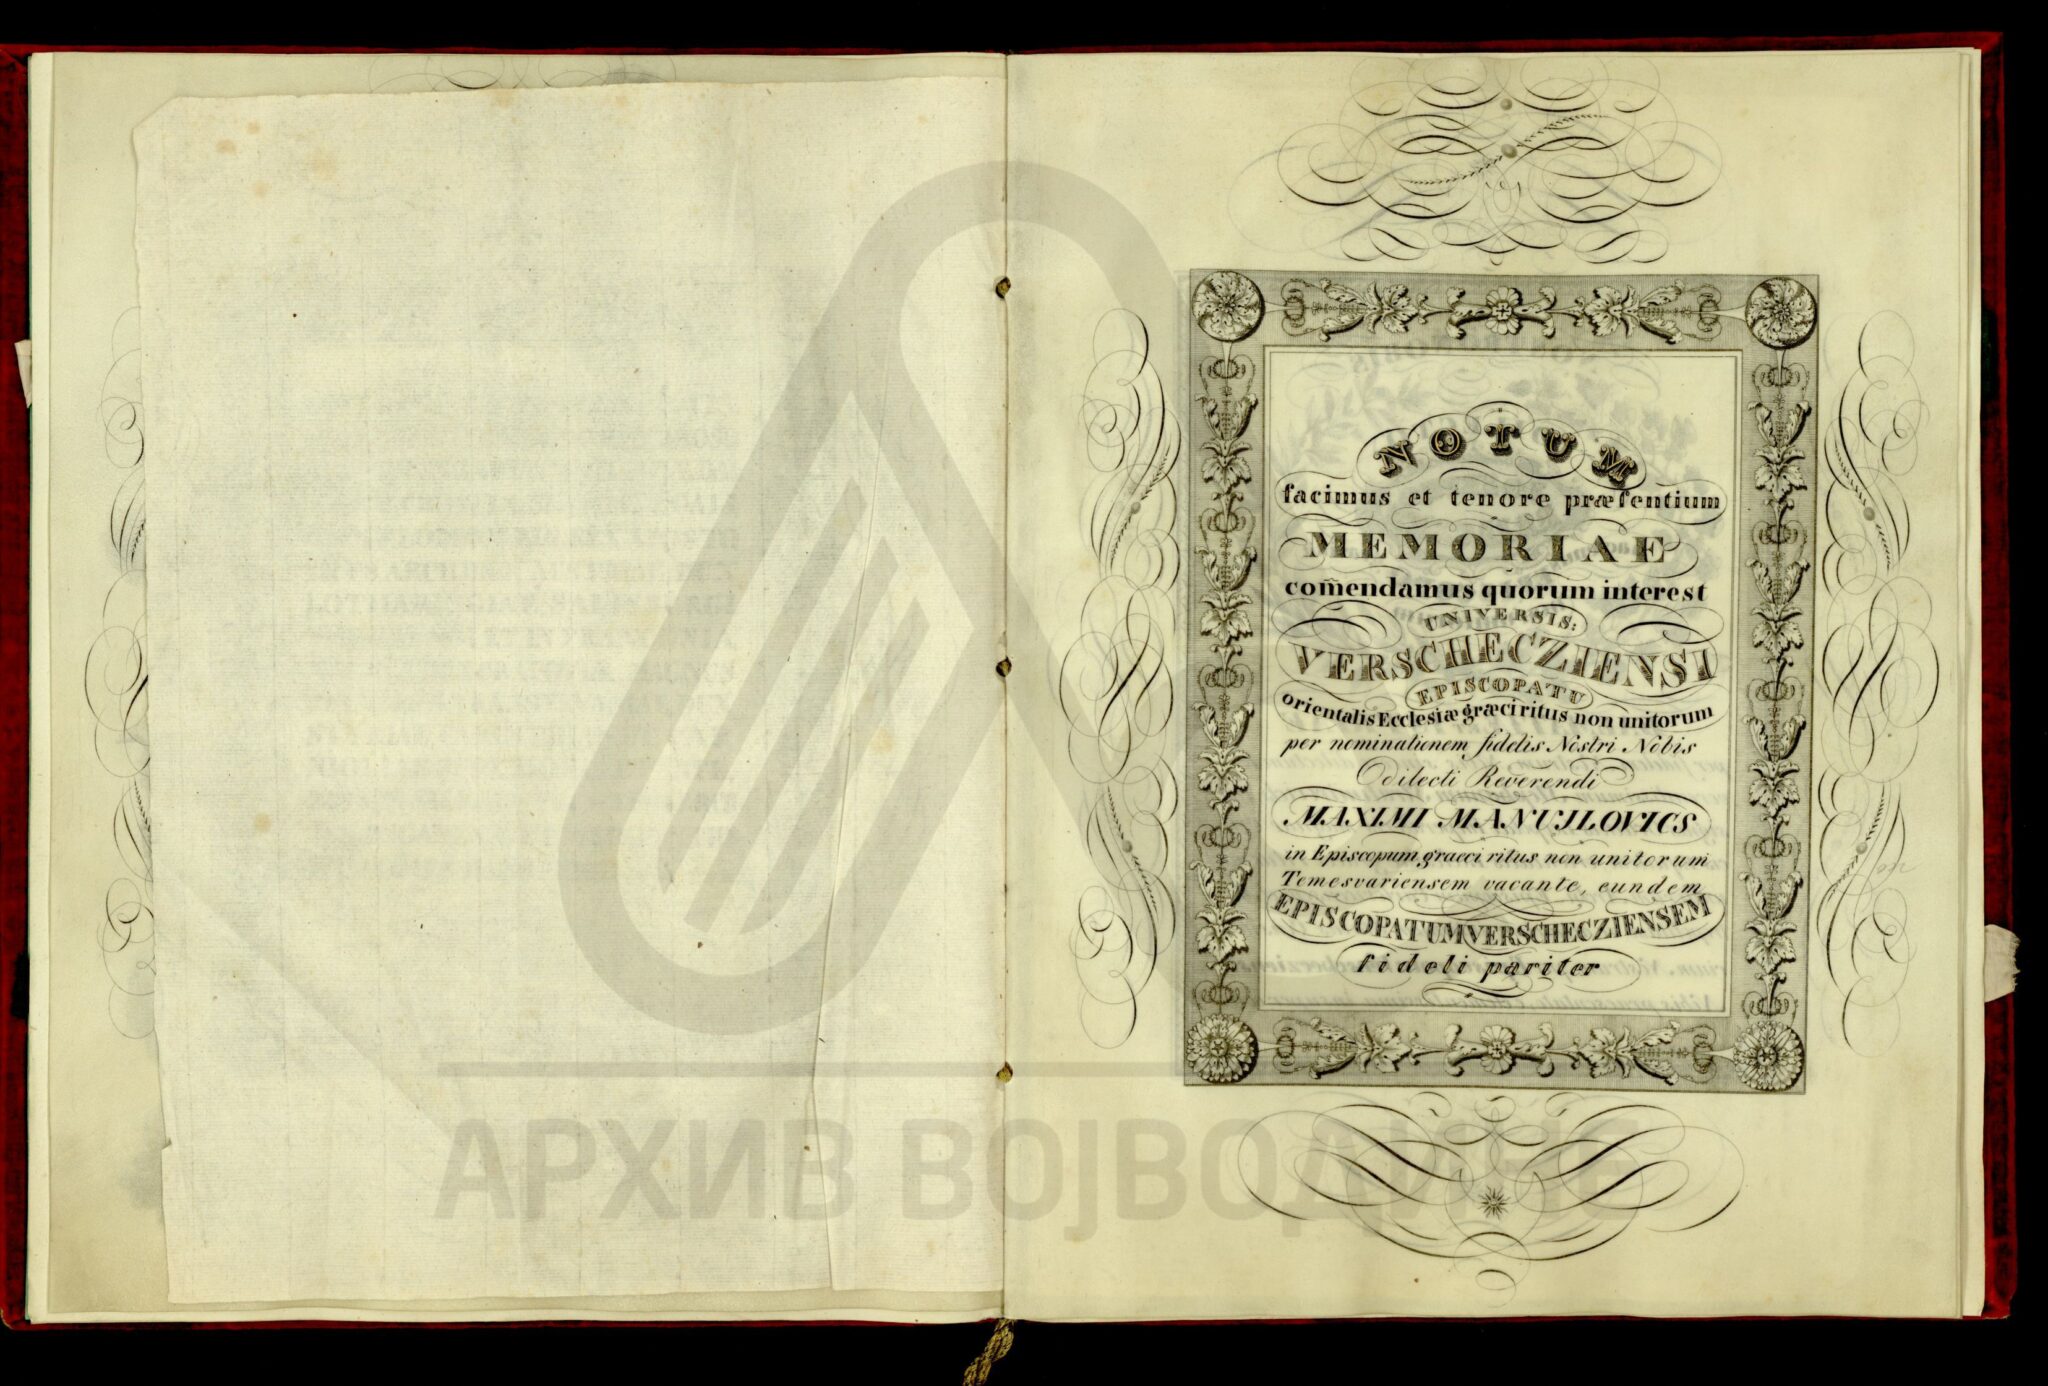 NOTUM
facimus et tenore præsentium
MEMORIAE
com̃endamus quorum interest
UNIVERSIS:
VERSCHECZIENSI
EPISCOPATU
orientalis Ecclesiæ græci ritus non unitorum
per nominationem fidelis Nostri Nobis
dilecti Reverendi
MAXIMI MANUJLOVICS
in Episcopum graeci ritus non unitorum
Temesvariensem vacante, eundem
EPISCOPATUM VERSCHECZIENSEM
fideli pariter
АРХИВ ВОЈВОДИНЕ